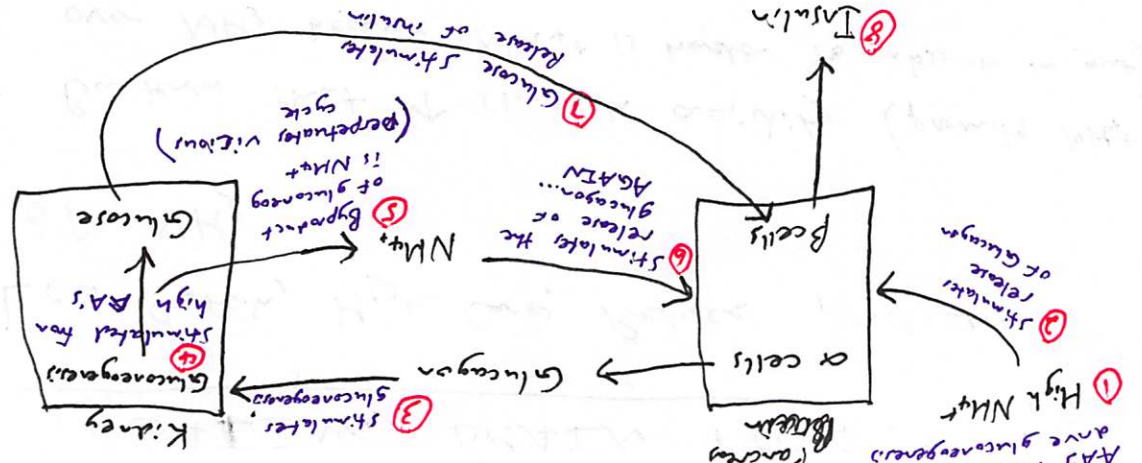 AA's
drive gluconeogenesis
① High NH4+
② Stimulates
release
of Glucagon
Pancreas
α cells
β cells
Glucagon
③ Stimulates
gluconeogenesis
Kidney
Gluconeogenesis
④ Stimulated from
high AA's
Glucose
NH4+
⑤ Byproduct
of gluconeog
is NH4+
(perpetuates vicious
cycle)
⑥ Stimulates the
release of
glucagon...
AGAIN
⑦ Glucose stimulates
Release of insulin
⑧ Insulin